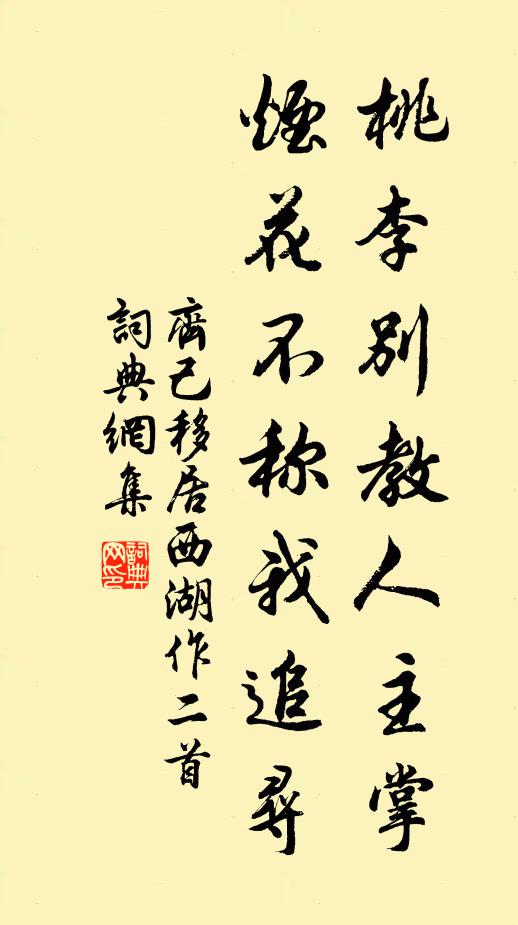 桃李别教人主掌
煙花不称我追尋
齊己移居西湖作二首
詞典網集
詞典网印